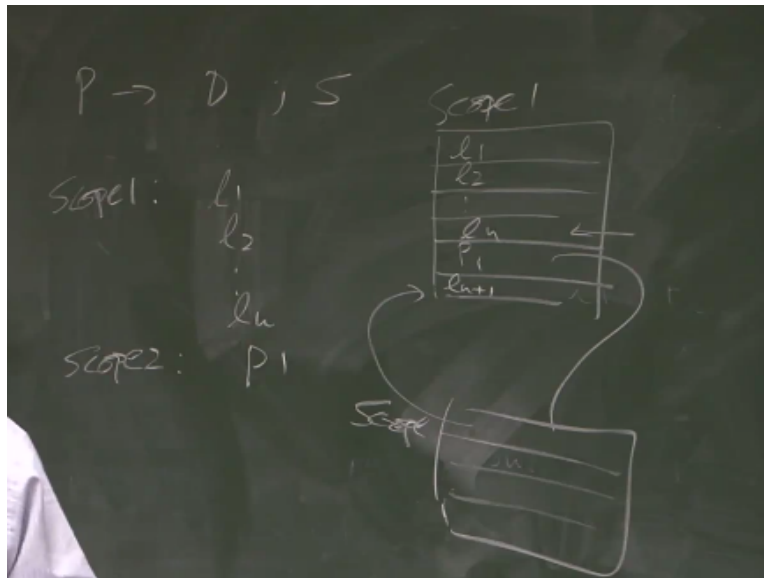 P → D ; S
Scope1:
l1
l2
:
ln
Scope2: P1
Scope1
l1
l2
:
ln ←
P1
ln+1
Scope